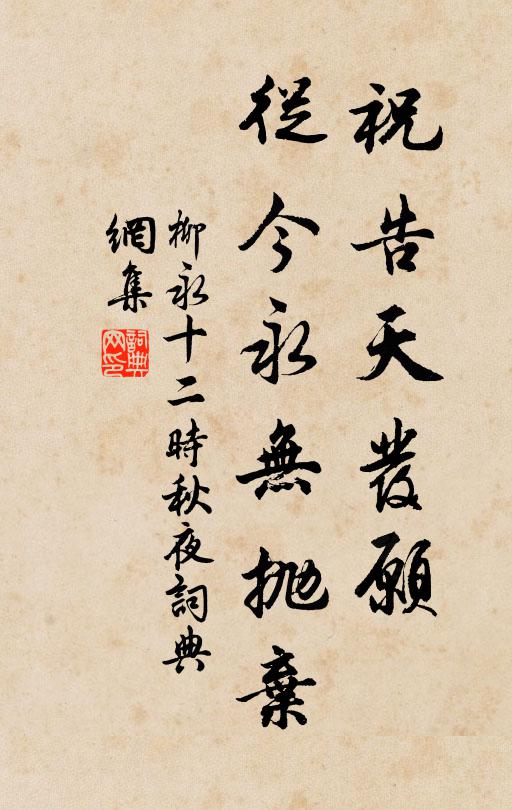 祝告天發願
從今永無抛棄
柳永十二時秋夜詞典
網集
詞典网印